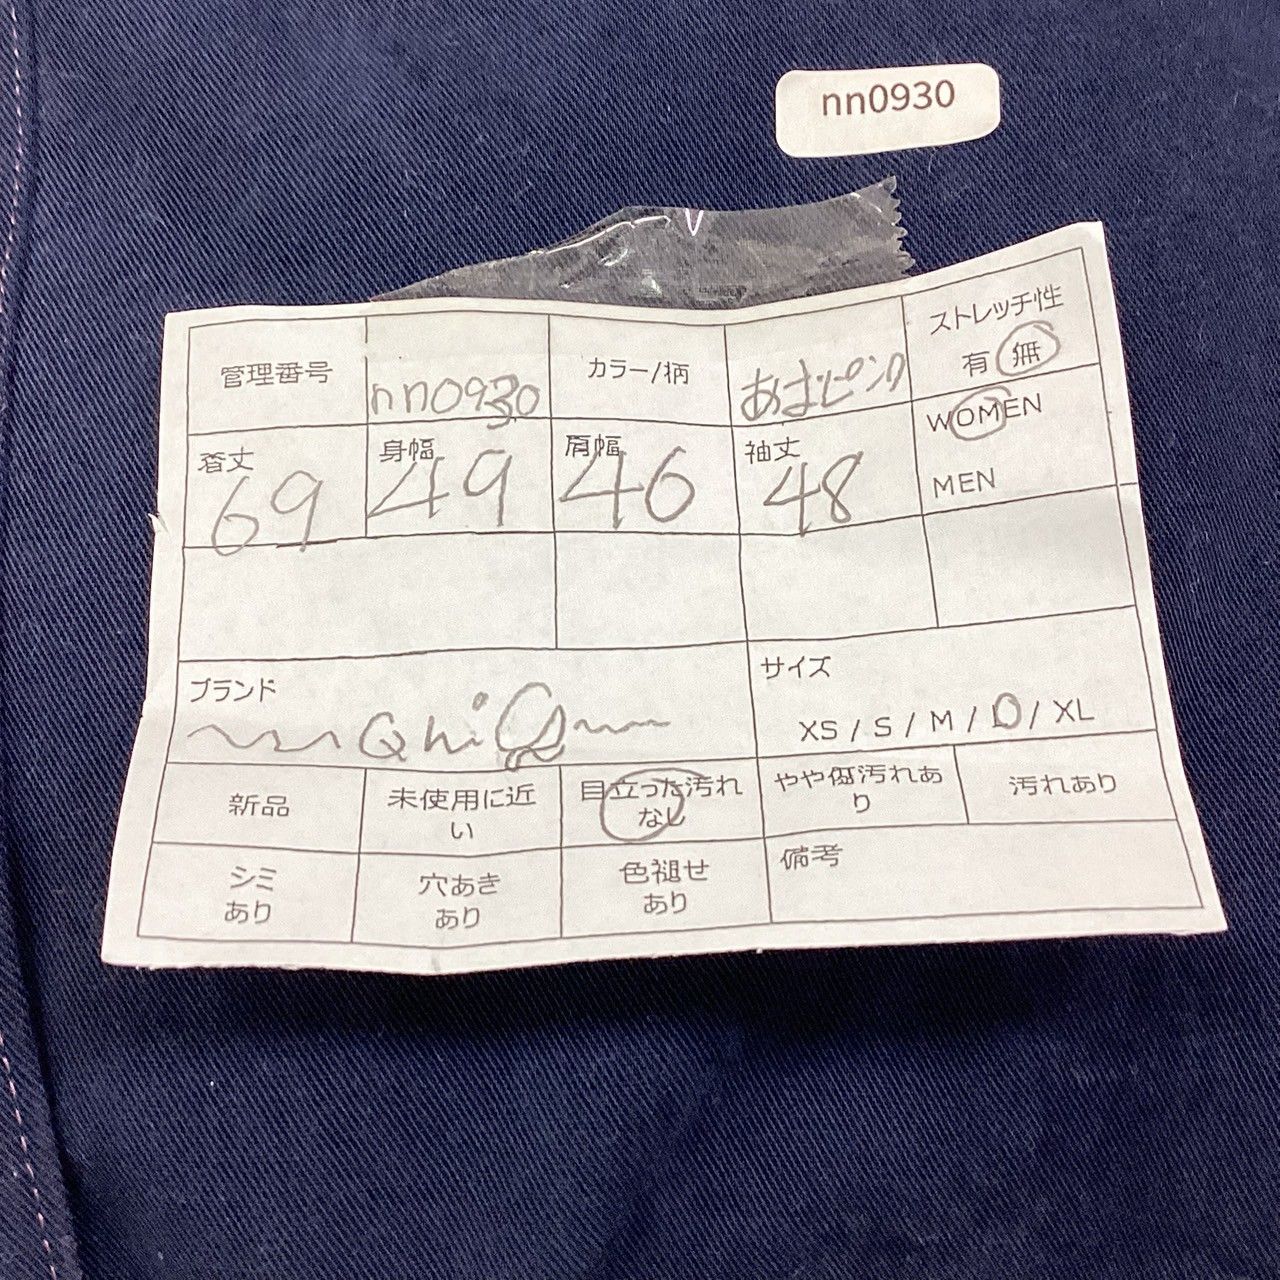 nn0930
管理番号
nn0930
カラー/柄
ストレッチ性
有 無
着丈
69
身幅
49
肩幅
46
袖丈
48
WOMEN
MEN
ブランド
サイズ
XS / S / M / L / XL
新品
未使用に近
い
目立った汚れ
なし
やや傷汚れあ
り
汚れあり
シミ
あり
穴あき
あり
色褪せ
あり
備考